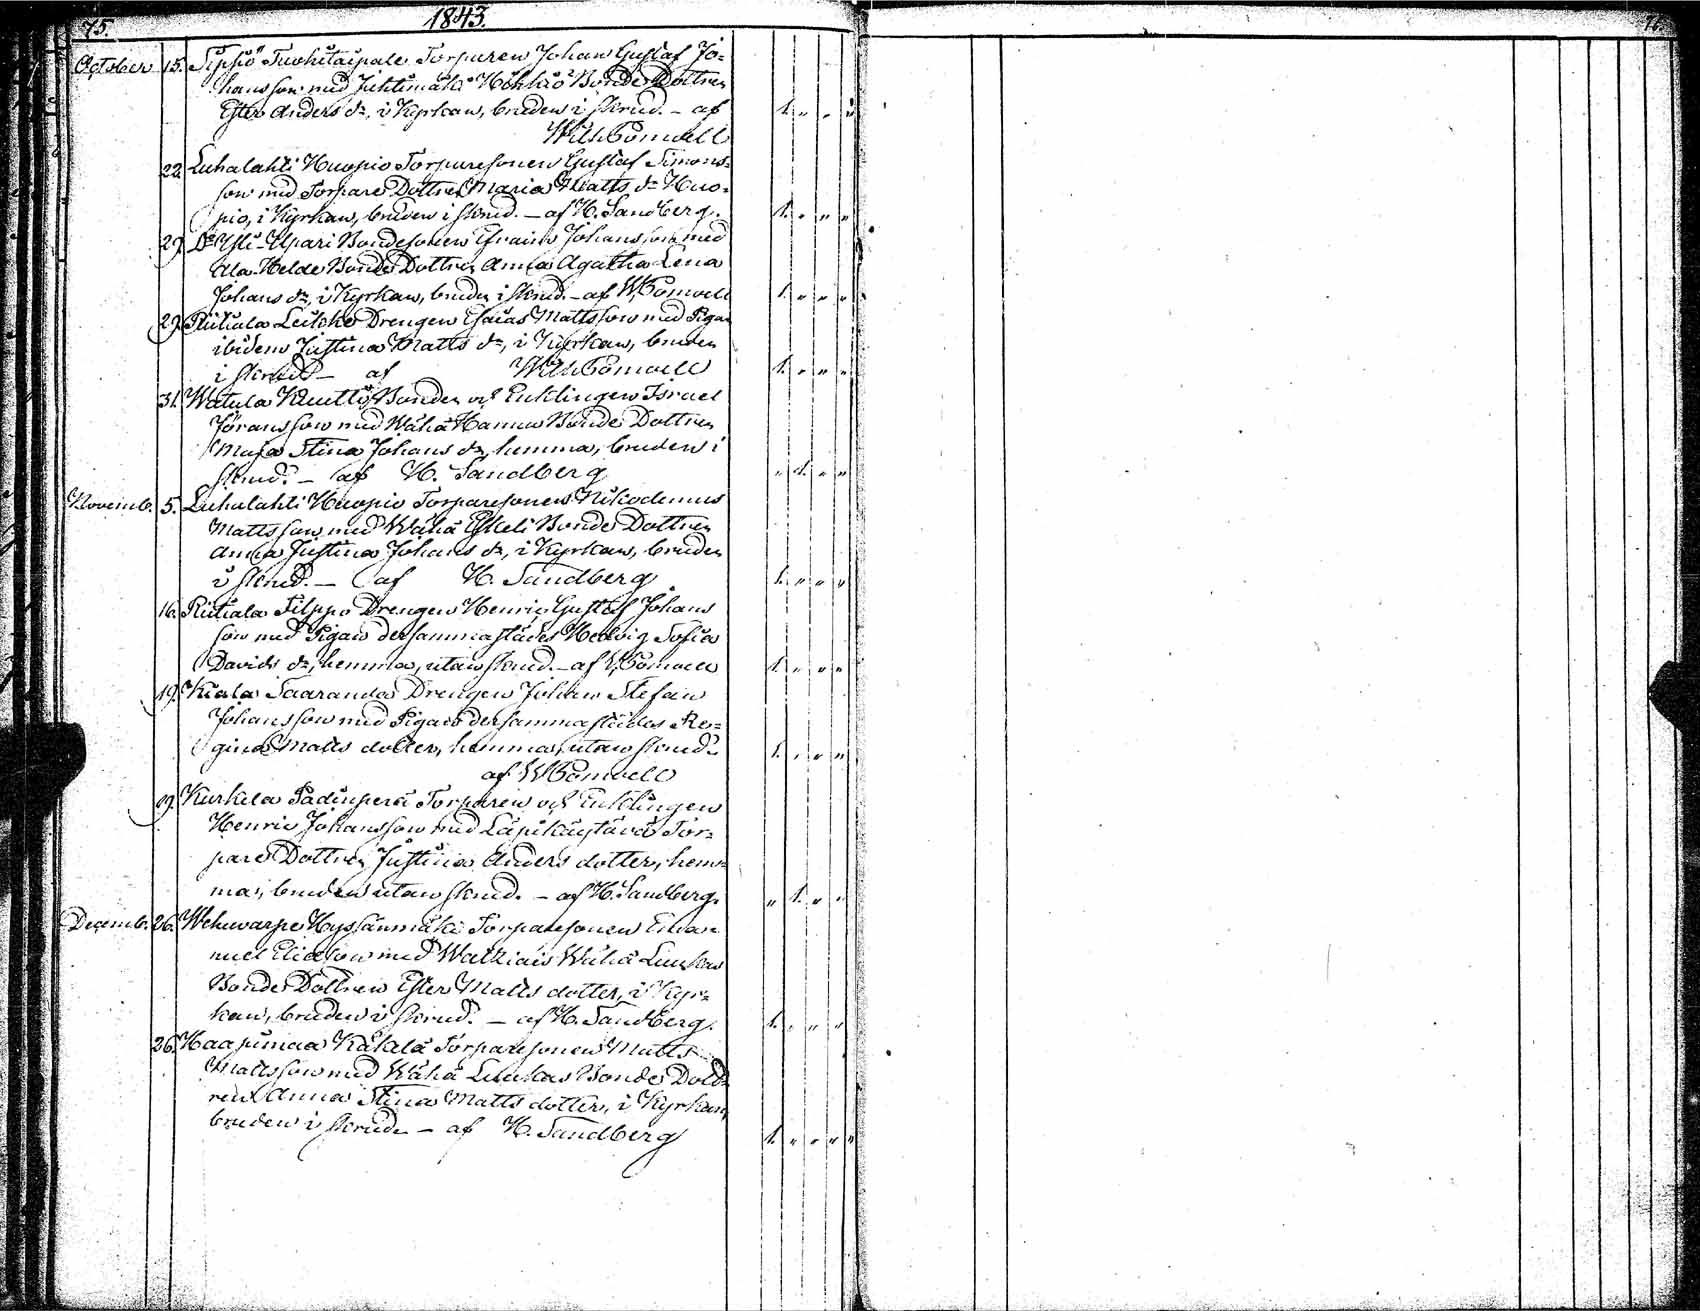 75.
1843.
October 15. Sipsiö Tuohitaipale Torparen Johan Gustaf Jo=
hansson med Juhtimäki Heikkiö Bonde Dottren
Ester Anders dr, i Kyrkan, bruden i skrud. – af
1. „ „ „
Wilh. Pomoell
22. Luhalahti Huopio Torparesonen Gustaf Simons=
son med Torpare Dottren Maria Matts dr Huo=
pio, i Kyrkan, bruden i skrud. – af H. Sandberg.
1. „ „ „
29. Yli-Upari Bondesonen Efraim Johansson med
Ala-Helde Bonde Dottren Anna Agatha Lena
Johans dr, i Kyrkan, bruden i skrud. – af W. Pomoell
1. „ „ „
29. Riitiala Drengen Esaias Mattsson med Pigan
ibidem Justina Matts dr, i Kyrkan, bruden
i skrud – af Wilh. Pomoell
1. „ „ „
31. Watula Knuttö Bonden och Enklingen Israel
Göransson med Wähä Hannu Bonde Dottren
Maja Stina Johans dr, hemma, bruden i
skrud. – af H. Sandberg
„ 1. „ „
Novemb. 5. Luhalahti Huopio Torparesonen Nikodemus
Mattsson med Wähä Eskeli Bonde Dottren
Anna Justina Johans dr, i Kyrkan, bruden
i skrud. – af H. Sandberg.
1. „ „ „
16. Riitiala Filppo Drengen Henric Gustaf Johans
son med Pigan dersammastädes Hedvig Sofia
Davids dr, hemma, utan skrud. – af W. Pomoell
1. „ „ „
19. Kiala Saaranda Drengen Johan Stefan
Johansson med Pigan dersammastädes Re=
gina Matts dotter, hemma, utan skrud.
1. „ „ „
af W. Pomoell
19. Kurkela Padinperä Torparen och Enklingen
Henric Johansson med Läpikäytävä Tor=
pare Dottren Justina Anders dotter, hem=
ma, bruden utan skrud. – af H. Sandberg.
„ 1. „ „
Decemb. 26. Wehuvarpe Hyssänmäki Torparesonen Ema=
nuel Eliasson med Walkiais Wähä Luukas
Bonde Dottren Ester Matts dotter, i Kyr=
kan, bruden i skrud. – af H. Sandberg.
1. „ „ „
26. Haapimaa Käkelä Torparesonen Matts
Mattsson med Wähä Luukas Bonde Dott=
ren Anna Stina Matts dotter, i Kyrkan,
bruden i skrud. – af H. Sandberg
1. „ „ „